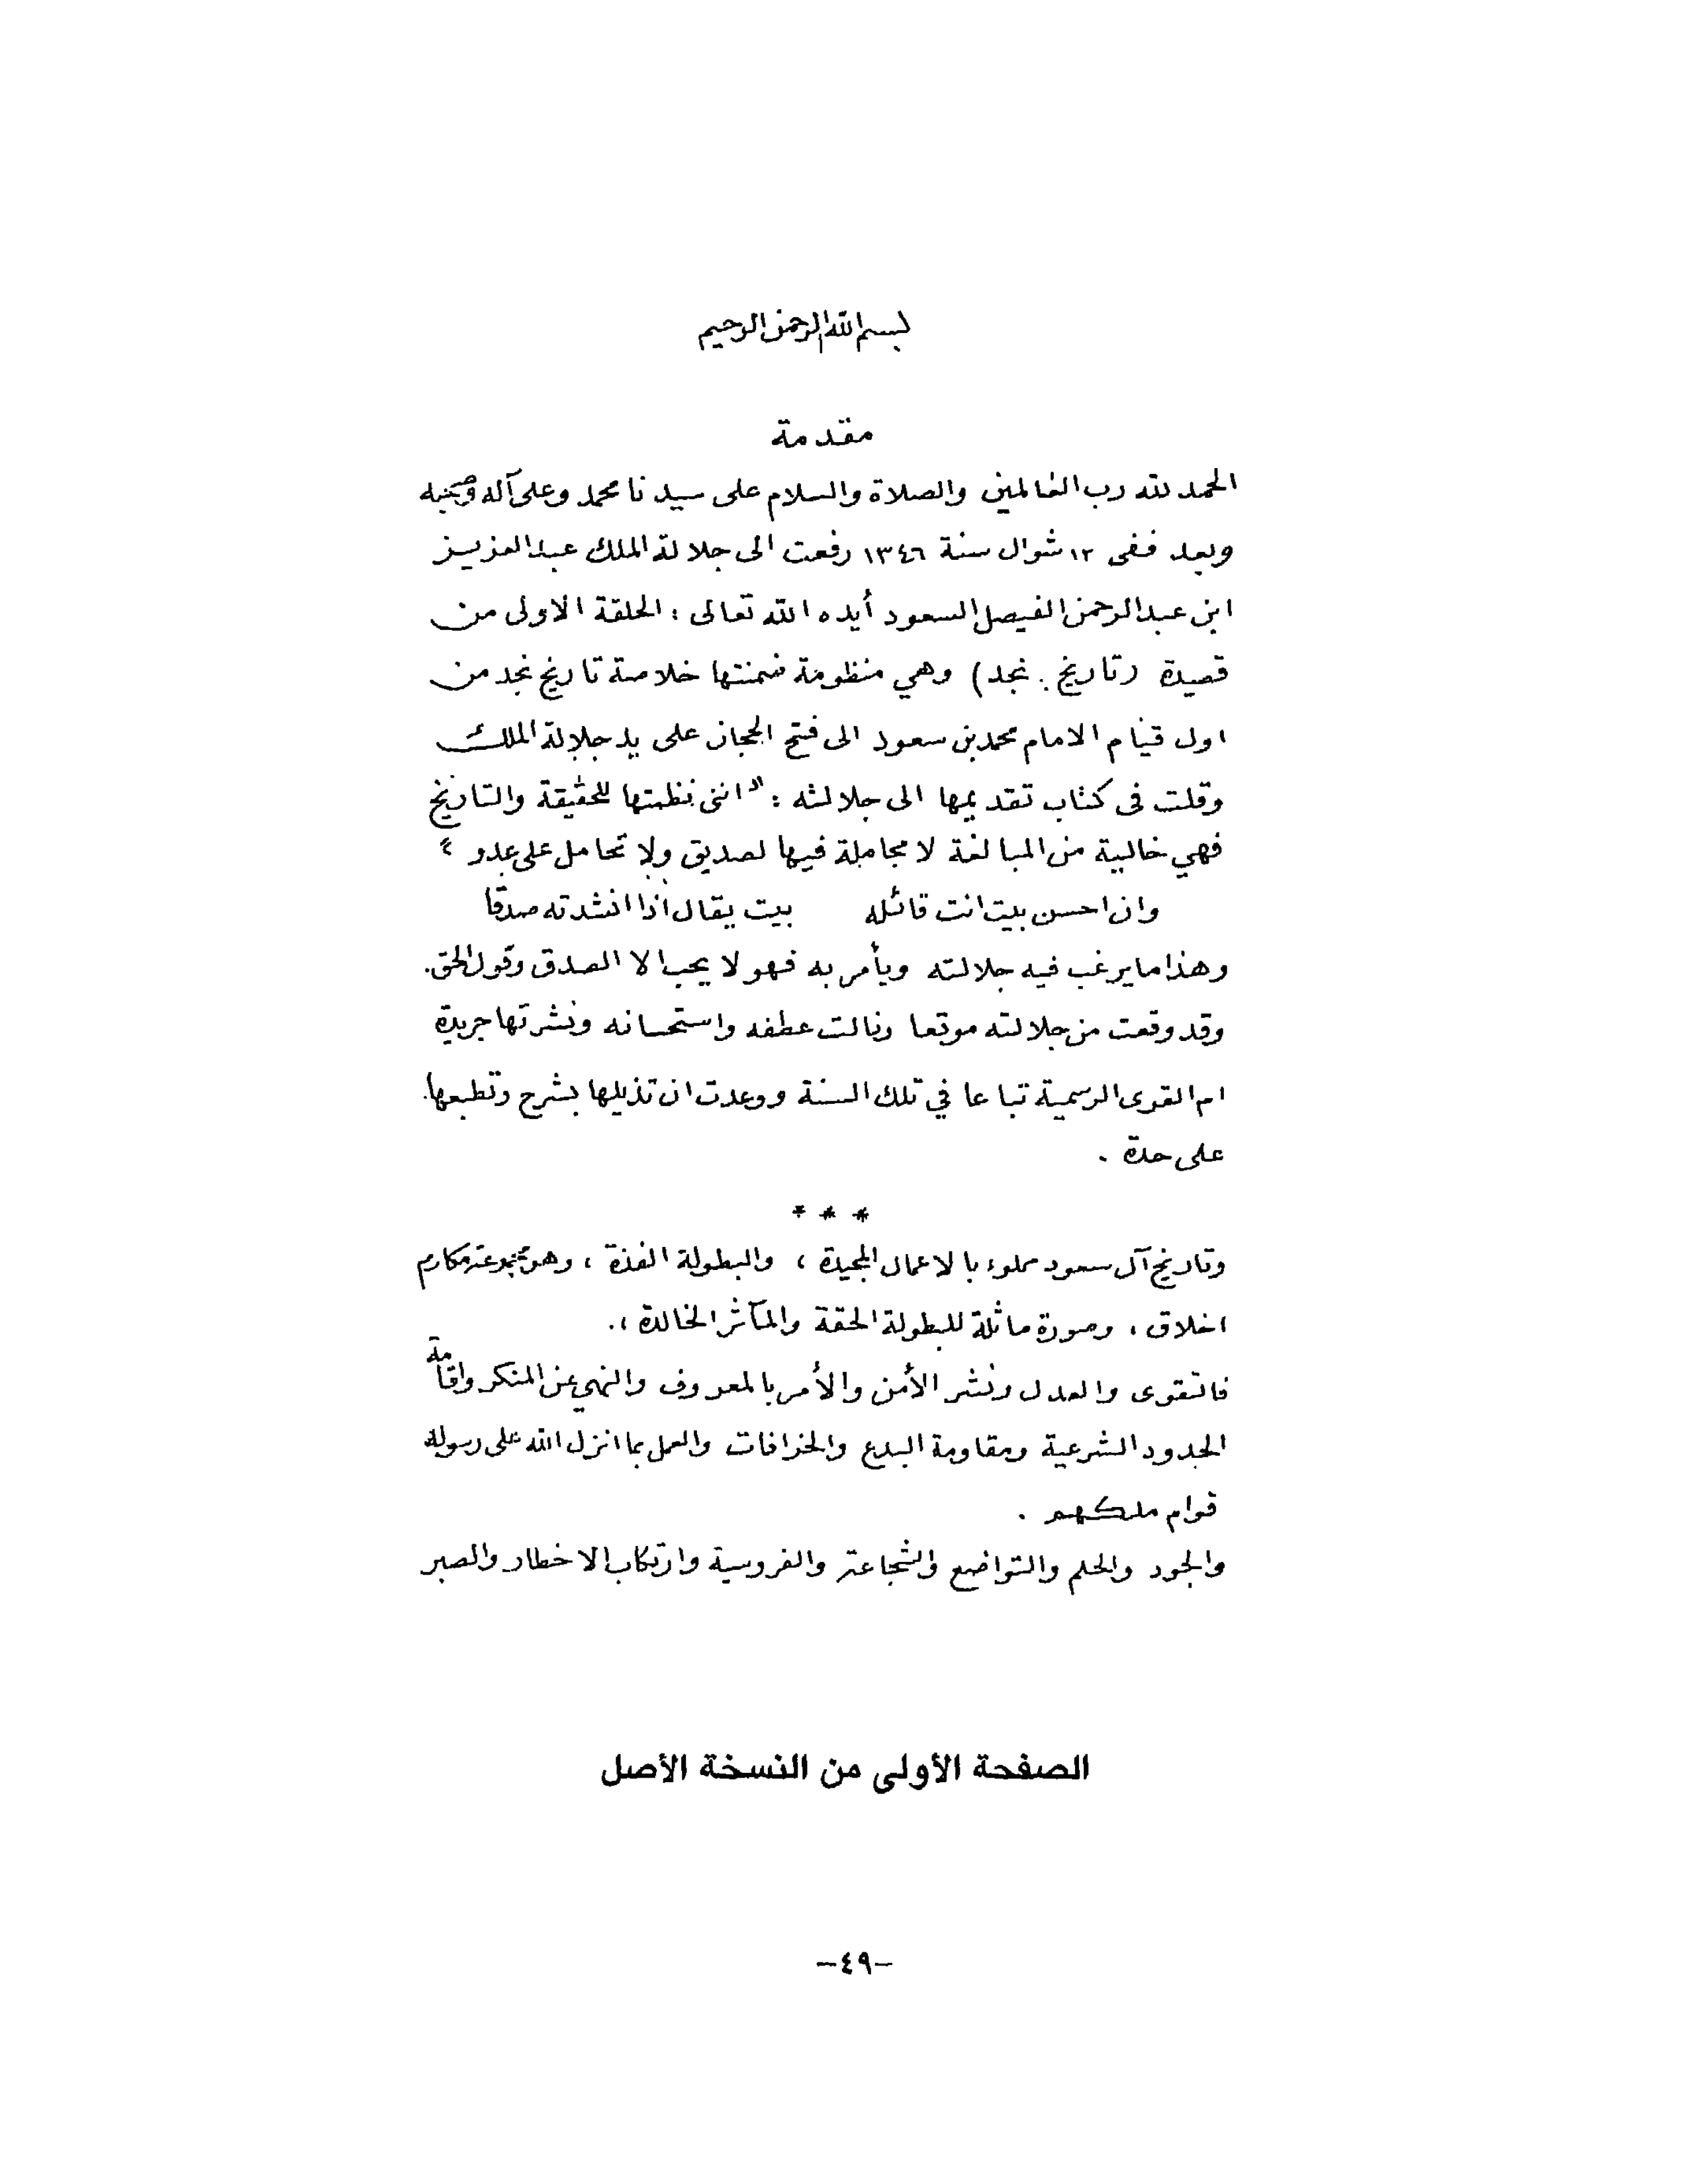 بسم الله الرحمن الرحيم
مقدمة
الحمد لله رب العالمين والصلاة والسلام على سيدنا محمد وعلى آله وصحبه
وبعد ففى ١٢ شوال سنة ١٣٤٦ رفعت الى جلالة الملك عبدالعزيز
ابن عبدالرحمن الفيصل السعود أيده الله تعالى : الحلقة الاولى من
قصيدة (تاريخ نجد) وهي منظومة ضمنتها خلاصة تاريخ نجد من
اول قيام الامام محمد بن سعود الى فتح الحجاز على يد جلالة الملك
وقلت فى كتاب تقديمها الى جلالته : " اننى نظمتها للحقيقة والتاريخ
فهي خالية من المبالغة لا مجاملة فيها لصديق ولا تحامل على عدو "
وان احسن بيت انت قائله بيت يقال اذا انشدته صدقا
وهذا ما يرغب فيه جلالته ويأمر به فهو لا يحب الا الصدق وقول الحق.
وقد وقعت من جلالته موقعا ونالت عطفه واستحسانه ونشرتها جريدة
ام القرى الرسمية تباعا في تلك السنة ووعدت ان تذيلها بشرح وتطبعها
على حدة .
* * *
وتاريخ آل سعود مملوء بالاعمال المجيدة ، والبطولة الفذة ، وهو مجموعة مكارم
اخلاق ، وصورة ماثلة للبطولة الحقة والمآثر الخالدة .،
فالتقوى والعدل ونشر الأمن والأمر بالمعروف والنهي عن المنكر واقامة
الحدود الشرعية ومقاومة البدع والخرافات والعمل بما انزل الله على رسوله
قوام ملكهم .
والجود والحلم والتواضع والشجاعة والفروسية وارتكاب الاخطار والصبر
الصفحة الأولى من النسخة الأصل
-٤٩-